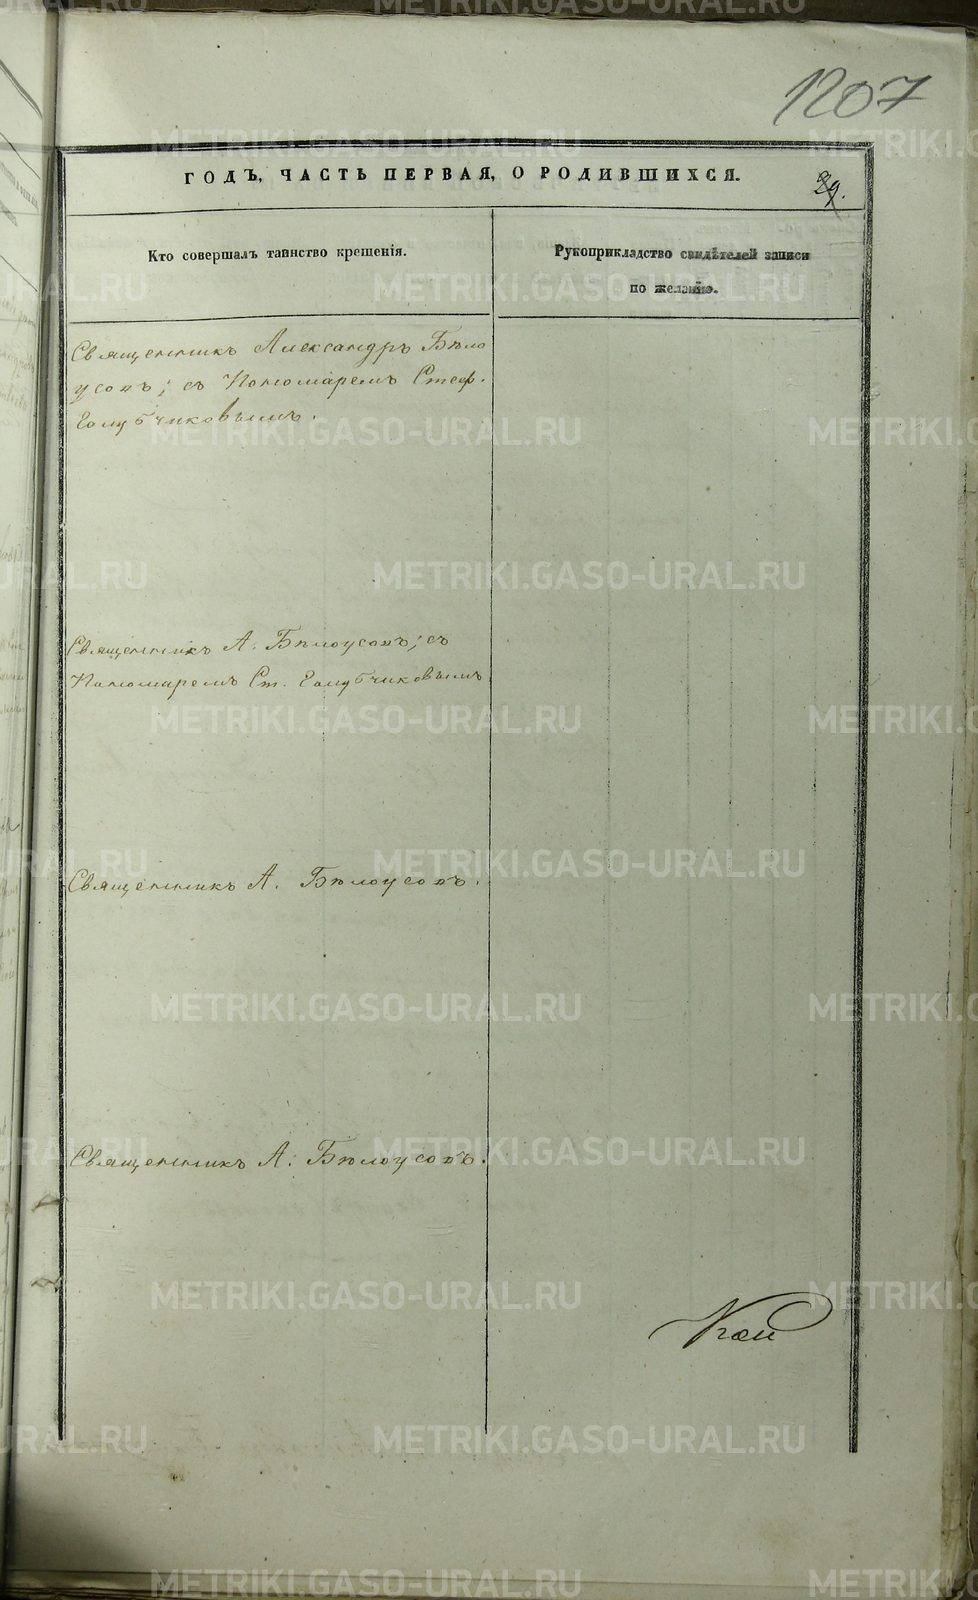 1207
ГОДЪ, ЧАСТЬ ПЕРВАЯ, О РОДИВШИХСЯ.
29.
Кто совершалъ таинство крещенія.
Рукоприкладство свидѣтелей записи
по желанію.
Священникъ Александръ Бѣло
усовъ; съ Пономаремъ Стеф.
Голубчиковымъ.
Священникъ А. Бѣлоусовъ; съ
Пономаремъ Ст. Голубчиковымъ
Священникъ А. Бѣлоусовъ.
Священникъ А. Бѣлоусовъ.
METRIKI.GASO-URAL.RU